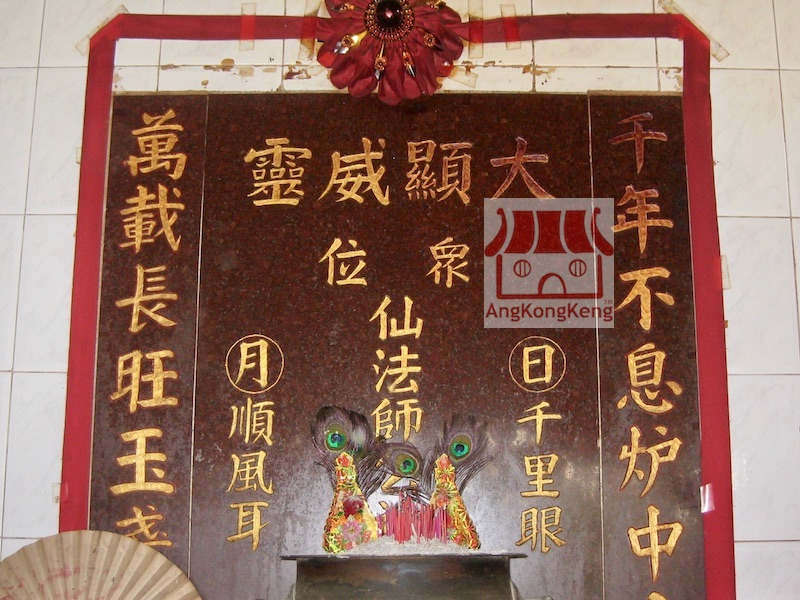 大顯威靈
千年不息炉中
萬載長旺玉盞
眾位
仙法師
日千里眼
月順風耳
AngKongKeng
TM